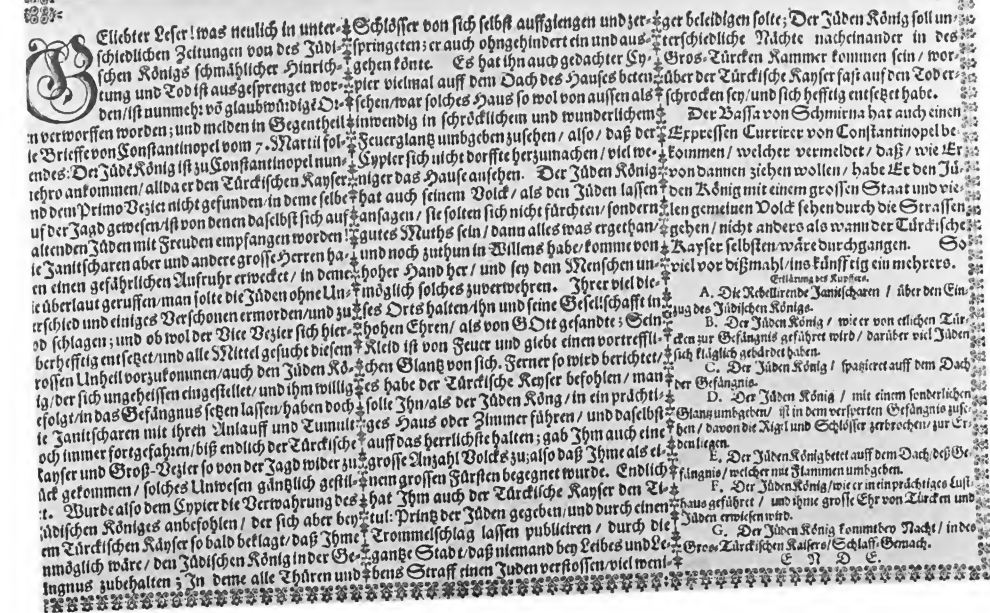 Eliebter Leser! was neulich in unter-
schiedlichen Zeitungen von des Jüdi-
schen Königs schmählicher Hinrich-
tung und Tod ist ausgesprenget wor-
den/ist nunmehr vō glaubwürdigē Or-
n verworffen worden; und melden in Gegentheil
ie Brieffe von Constantinopel vom 7. Martii fol-
endes: Der Jüdē König ist zu Constantinopel nun-
mehro ankommen/allda er den Türckischen Kayser
nd dem Primo Vezier nicht gefunden/in deme selbe
uf der Jagd gewesen/ist von denen daselbst sich auf
altenden Jüden mit Freuden empfangen worden!
ie Janitscharen aber und andere grosse Herren ha-
en einen gefährlichen Aufruhr erwecket/ in deme
ie überlaut geruffen/man solte die Jüden ohne Un-
erschied und einiges Verschonen ermorden/und zu
od schlagen; und ob wol der Vice Vezier sich hier-
berhefftig entsetzet/und alle Mittel gesucht diesem
rossen Unheil vorzukommen/auch den Jüden Kö-
ig/der sich ungeheissen eingestellet/und ihm willig
efolgt/in das Gefängnus setzen lassen/haben doch
ie Janitscharen mit ihren Anlauff und Tumult
och immer fortgefahren/biß endlich der Türckische
Kayser und Groß-Vezier so von der Jagd wider zu
ück gekommen/ solches Unwesen gäntzlich gestil-
t. Wurde also dem Cypier die Verwahrung des
Jüdischen Königes anbefohlen/ der sich aber bey
em Türckischen Käyser so bald beklagt/daß Ihme
nmöglich wäre/den Jüdischen König in der Ge-
ingnus zubehalten; In deme alle Thüren und
Schlösser von sich selbst auffgiengen und zer-
springeten: er auch ohngehindert ein und aus-
gehen könte. Es hat ihn auch gedachter Cy-
pier vielmal auff dem Dach des Hauses beten
sehen/war solches Haus so wol von aussen als
inwendig in schröcklichem und wunderlichem
Feuerglantz umbgeben zusehen/ also/ daß der
Cypier sich nicht dorffte herzumachen/ viel we-
niger das Hause ansehen. Der Jüden König
hat auch seinem Volck/ als den Jüden lassen
ansagen/ sie solten sich nicht fürchten/ sondern
gutes Muths sein/ dann alles was er gethan/
und noch zuthun in Willens habe/komme von
hoher Hand her/ und sey dem Menschen un-
möglich solches zuverwehren. Ihrer viel die-
ses Orts halten/ihn und seine Gesellschafft in
hohen Ehren/ als von GOtt gesandte: Sein
Kleid ist von Feuer und giebt einen vortreffli-
chen Glantz von sich. Ferner so wird berichtet/
es habe der Türckische Keyser befohlen/ man
solle Ihn/als der Jüden Köng/in ein prächti-
ges Haus oder Zimmer führen/ und daselbst
auff das herrlichste halten; gab Ihm auch eine
grosse Anzahl Volcks zu;also daß Ihme als ei-
nem grossen Fürsten begegnet wurde. Endlich
hat Ihm auch der Türckische Kayser den Ti-
tul: Printz der Jüden gegeben/und durch einen
Trommelschlag lassen publiciren/ durch die
gantze Stadt/daß niemand bey Leibes und Le-
bens Straff einen Juden verstossen/viel weni-
ger beleidigen solte; Der Jüden König soll un-
terschiedliche Nächte nacheinander in des
Gros-Türcken Kammer kommen sein/ wor-
über der Türckische Kayser fast auf den Tod er-
schrocken sey/und sich hefftig entsetzet habe.
Der Bassa von Schmirna hat auch einen
Expressen Currirer von Constantinopel be-
kommen/ welcher vermeldet/ daß/ wie Er
von dannen ziehen wollen/ habe Er den Jü-
den König mit einem grossen Staat und vie-
len gemeinen Volck sehen durch die Strassen
gehen/ nicht anders als wann der Türckische
Kayser selbsten wäre durchgangen. So
viel vor dißmahl/ins künfftig ein mehrers.
Erklärung des Kupffers.
A. Die Rebellirende Janitscharen/ über den Ein-
zug des Jüdischen Königs.
B. Der Jüden König/ wie er von etlichen Tür-
cken zur Gefängnis geführet wird/ darüber viel Jüden
sich kläglich gebärdet haben.
C. Der Jüden König/ spazieret auff dem Dach
der Gefängnis.
D. Der Jüden König/ mit einem sonderlichen
Glantz umbgeben/ ist in dem versperten Gefängnis zuse-
hen/ davon die Rigl und Schlösser zerbrochen/zur Er-
den liegen.
E. Der Jüden König betet auff dem Dach/deß Ge-
fängnis/welcher mit Flammen umbgeben.
F. Der Jüden König/wie er in ein prächtiges Lust-
haus geführet/ und ihme grosse Ehr von Türcken und
Jüden erwiesen wird.
G. Der Jüden König kommet bey Nacht/ in des
Gros-Türckischen Kaisers/Schlaff-Gemach.
E N D E.